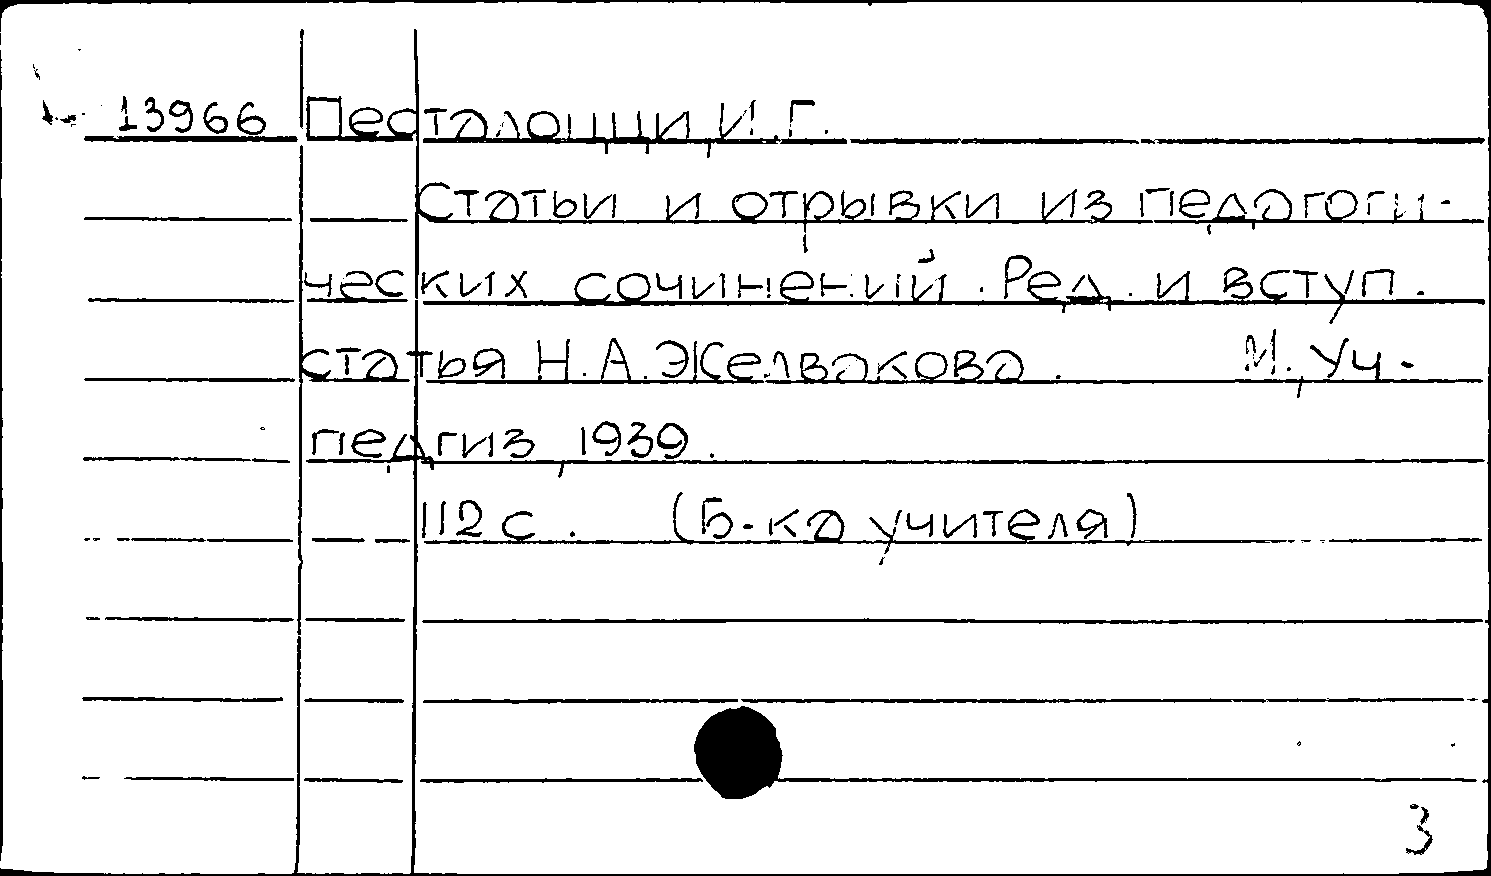 13966 Песталоцци, И.Г.
Статьи и отрывки из педагоги-
ческих сочинений. Ред. и вступ.
статья Н.А. Желвакова. М., Уч-
педгиз, 1939.
112 с. (Б-ка учителя)
3